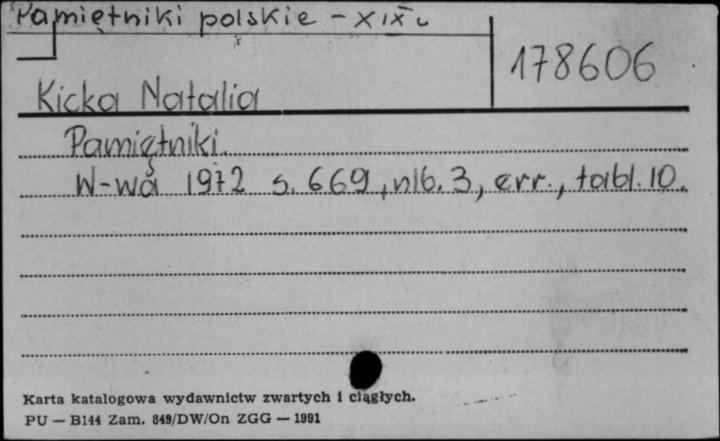 Pamiętniki polskie - XIX w
178606
Kicka Natalia
Pamiętniki.
W-wa 1972 s. 669, nlb. 3, err., tabl. 10.
Karta katalogowa wydawnictw zwartych i ciągłych.
PU — B144 Zam. 849/DW/On ZGG — 1991